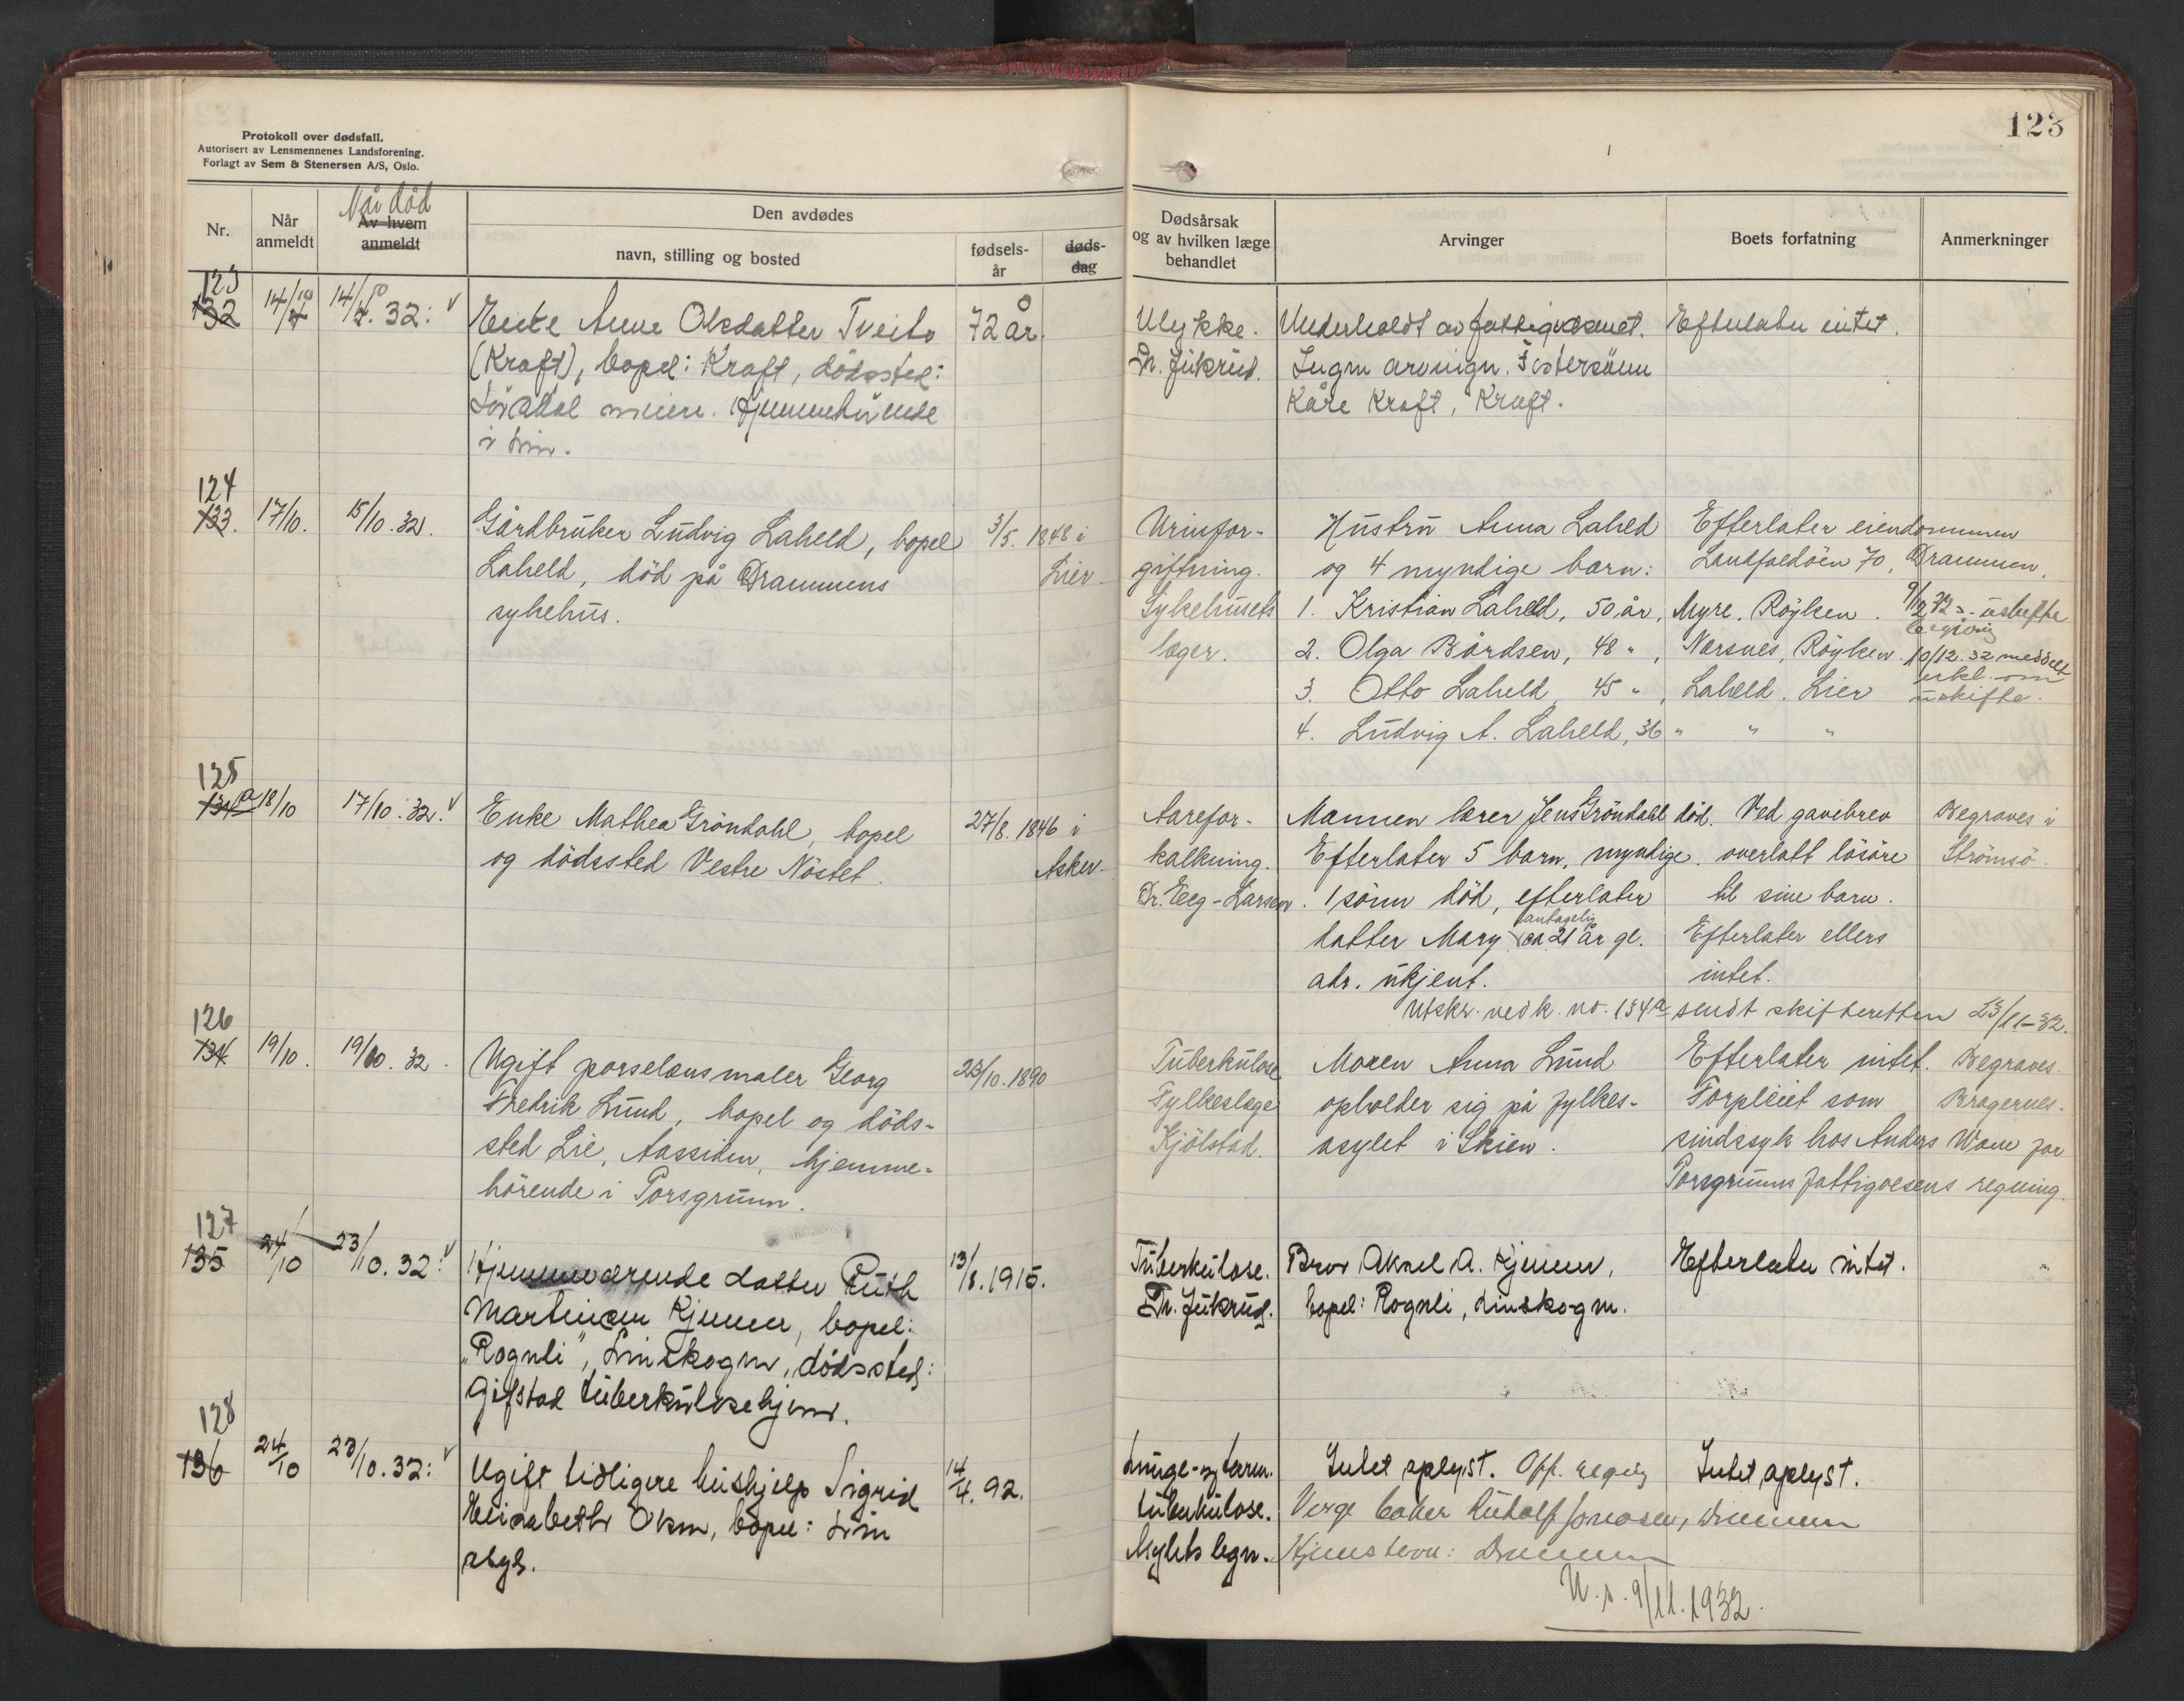 Protokoll over dødsfall.
Autorisert av Lensmennenes Landsforening.
Forlagt av Sem & Stenersen A/S, Oslo.
123
Nr.
Når anmeldt
Når død
Av hvem anmeldt
Den avdødes
navn, stilling og bosted
fødsels-år
døds-dag
Dødsårsak og av hvilken læge behandlet
Arvinger
Boets forfatning
Anmerkninger
123
132 14/10 14/10. 32. Enke Anne Olsdatter Tveito 72 år. Ulykke. Underholdt av fattigvæsenet. Efterlater intet.
(Kraft), bopel: Kraft, dödssted: Dr. Jükrud. Ingen arvinger. Fostersönn
meieri. Hjemmehörende Kåre Kraft, Kraft.
i Lier.
124
133. 17/10. 15/10. 32. Gårdbruker Ludvig Laheld, bopel 3/5. 1848 i Urinfor- Hustru Anna Laheld Efterlater eiendommen
Laheld, död på Drammens Lier. giftning. og 4 myndige barn: Landfaldöen 70, Drammen.
sykehus. Sykehusets 1. Kristian Laheld, 50 år, Myre, Röyken.
læger. 2. Olga Bårdsen, 48 " , Nærsnes, Röyken. 10/12. 32 meddelt
3. Otto Laheld, 45 " , Laheld. Lier erkl. om uskifte.
4. Ludvig A. Laheld, 36 " " "
125
134a 18/10 17/10. 32. Enke Mathea Gröndahl, bopel 27/8. 1846 i Aarefor- Mannen lærer Jens Gröndahl död. Ved gavebrev Begraves i
og dödssted Vestre Nöstet. Asker. kalkning. Efterlater 5 barn, myndige. overlatt lösöre Strömsö.
Dr. Eeg-Larsen. 1 sönn död, efterlater til sine barn.
datter Mary antagelig ca 21 år gl. Efterlater ellers
adr. ukjent. intet.
Utskr. vedk. no. 134a sendt skifteretten 23/11-32.
126
134. 19/10. 19/10. 32. Ugift porselensmaler Georg 23/10. 1890 Tuberkulose Moren Anna Lund Efterlater intet. Begraves.
Fredrik Lund, bopel og döds- Fylkeslæge opholder sig på fylkes- Forpleiet som Bragernes.
sted Lie, Aassiden, hjemme- Kjölstad. asylet i Skien. sindssyk hos Anders Wam for
hörende i Porsgrunn. Porsgrunns fattigvesens regning.
127
135 24/10 23/10. 32. Hjemmeværende datter Ruth 13/8. 1915. Tuberkulose. Bror Aksel A. Kjenner, Efterlater intet.
Martinsen Kjenner, bopel: Dr. Jükrud. bopel: Rognli, Lierskogen.
"Rognli", Lierskogen, dödssted:
Gifstad tuberkulosehjem.
128
136 24/10 23/10. 32. Ugift tidligere hushjelp Sigrid 14/4. 92. Lunge- og tarm- Intet oplyst. Intet oplyst.
Elisabeth Olsen, bopel: Lier tuberkulose. Verge baker Rudolf Jonassen, Drammen
asyl. Asylets læger. Hjemstavn: Drammen
U. s. 9/11. 1932.